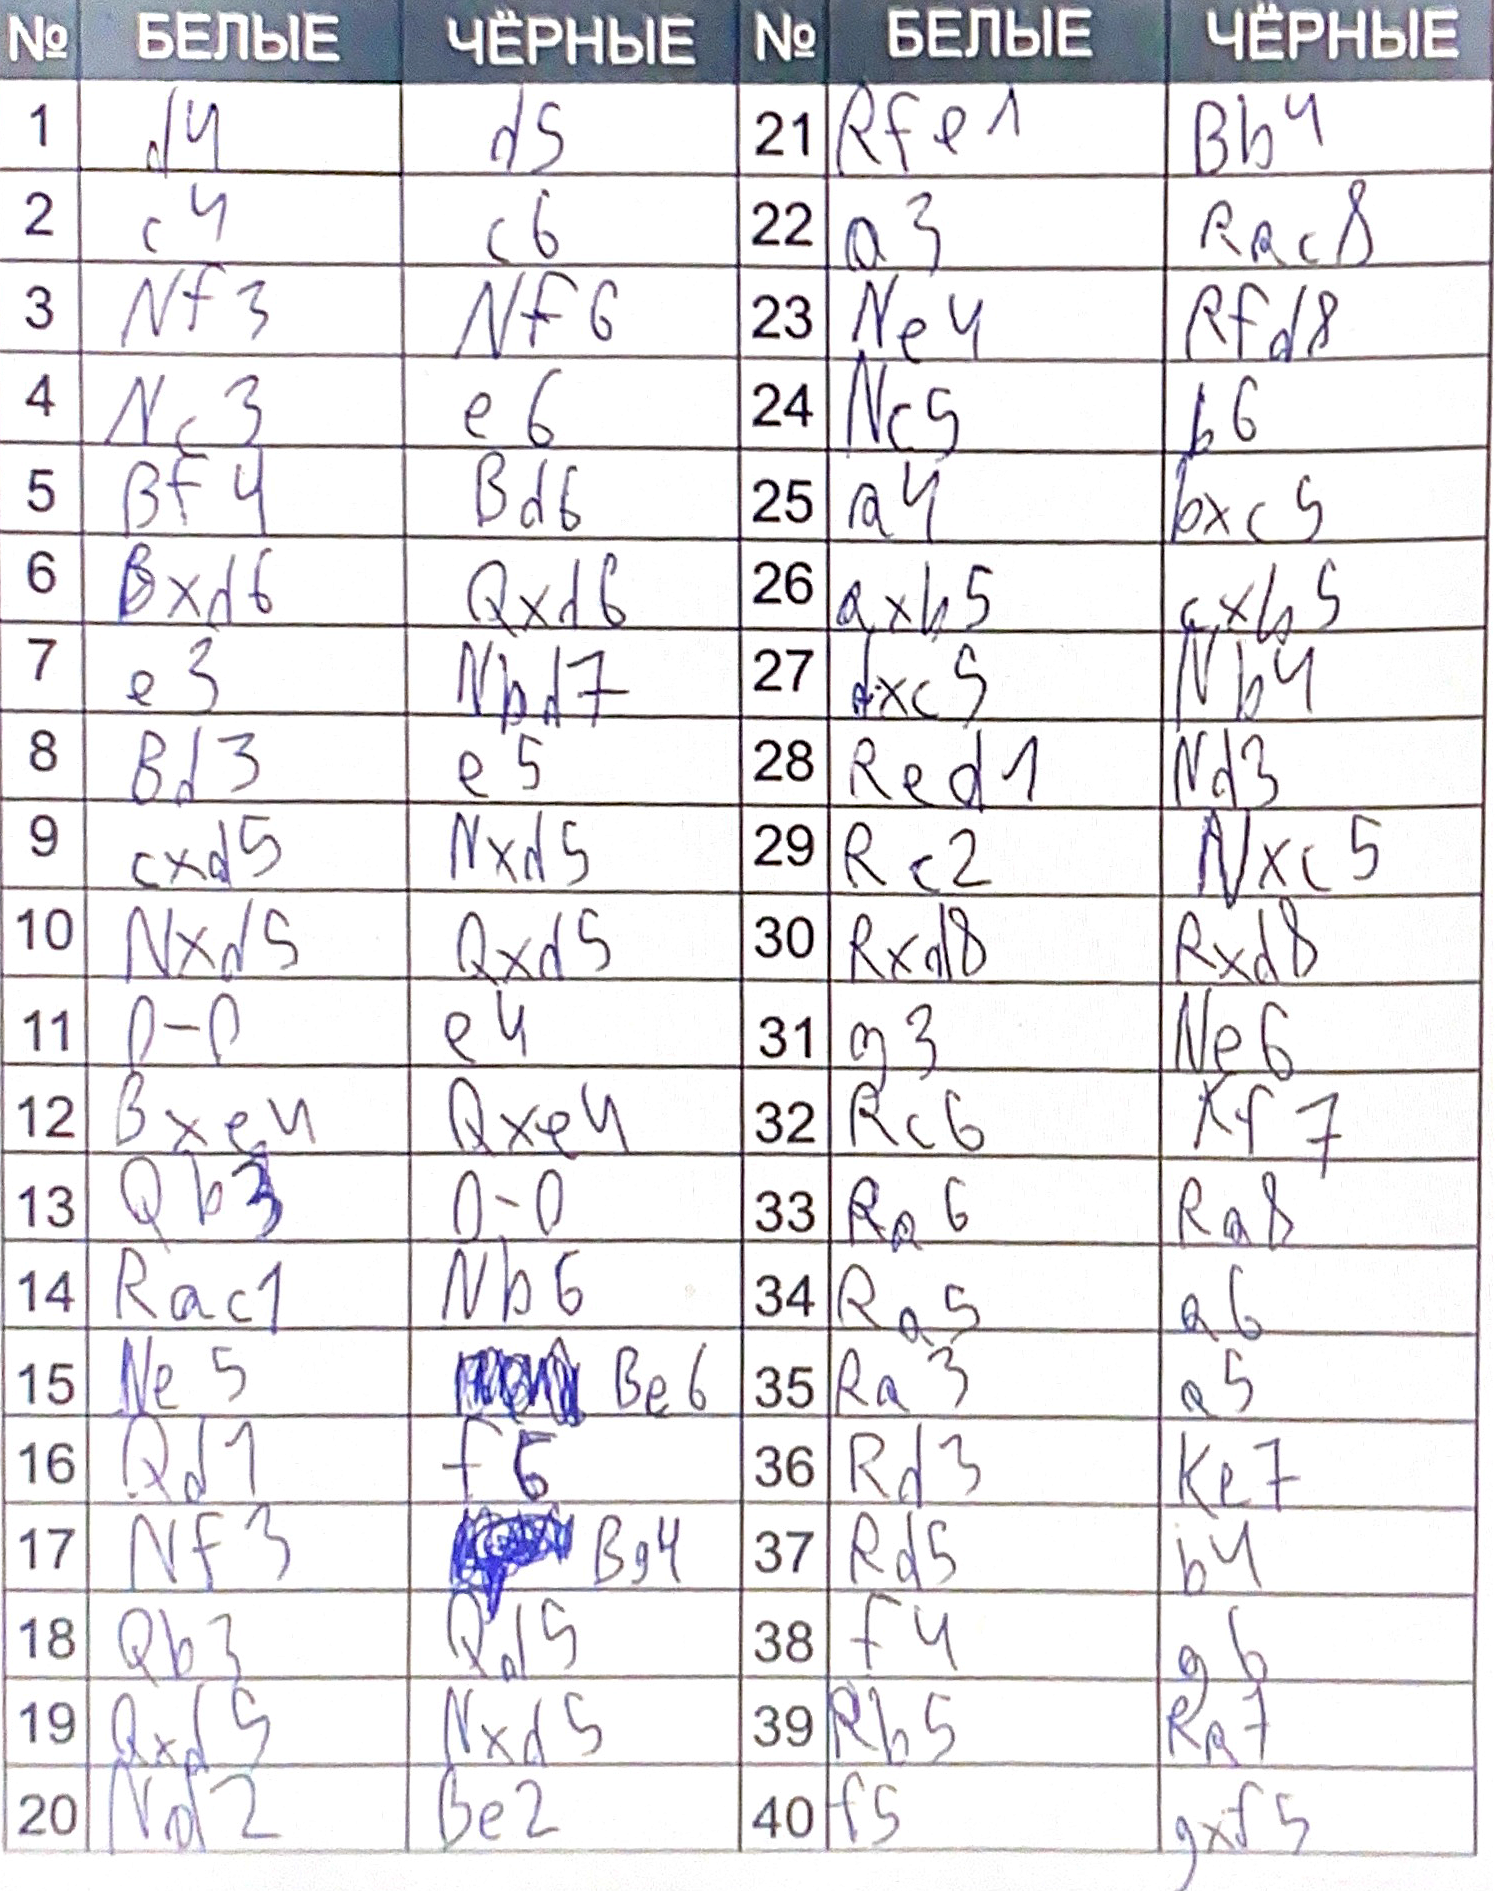 № БЕЛЫЕ ЧЁРНЫЕ № БЕЛЫЕ ЧЁРНЫЕ
1 d4 d5 21 Rfe1 Bb4
2 c4 c6 22 a3 Rac8
3 Nf3 Nf6 23 Ne4 Rfd8
4 Nc3 e6 24 Nc5 b6
5 Bf4 Bd6 25 a4 bxc5
6 Bxd6 Qxd6 26 axb5 cxb5
7 e3 Nbd7 27 dxc5 Nb4
8 Bd3 e5 28 Red1 Nd3
9 cxd5 Nxd5 29 Rc2 Nxc5
10 Nxd5 Qxd5 30 Rxd8 Rxd8
11 0-0 e4 31 g3 Ne6
12 Bxe4 Qxe4 32 Rc6 Kf7
13 Qb3 0-0 33 Ra6 Ra8
14 Rac1 Nb6 34 Ra5 a6
15 Ne5 Be6 35 Ra3 a5
16 Qd1 f6 36 Rd3 Ke7
17 Nf3 Bg4 37 Rd5 b4
18 Qb3 Qd5 38 f4 g6
19 Qxd5 Nxd5 39 Rb5 Ra7
20 Nd2 Be2 40 f5 gxf5